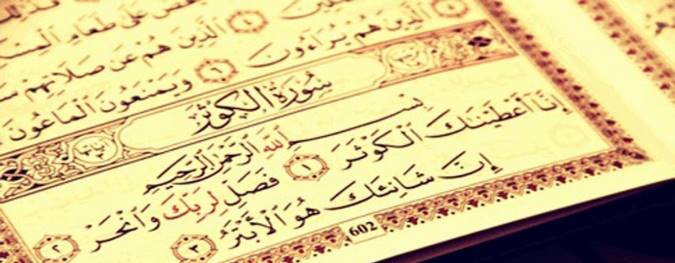 عَلَىٰ طَعَامِ
٤ ٱلَّذِينَ هُمْ عَن صَلَاتِهِمْ
ٱلَّذِينَ هُمْ يُرَآءُونَ ٦ وَيَمْنَعُونَ ٱلْمَاعُونَ
سُورَةُ الْكَوْثَرِ
بِسْمِ ٱللَّهِ ٱلرَّحْمَٰنِ ٱلرَّحِيمِ
إِنَّآ أَعْطَيْنَٰكَ ٱلْكَوْثَرَ ١ فَصَلِّ لِرَبِّكَ وَٱنْحَرْ ٢
إِنَّ شَانِئَكَ هُوَ ٱلْأَبْتَرُ ٣
602